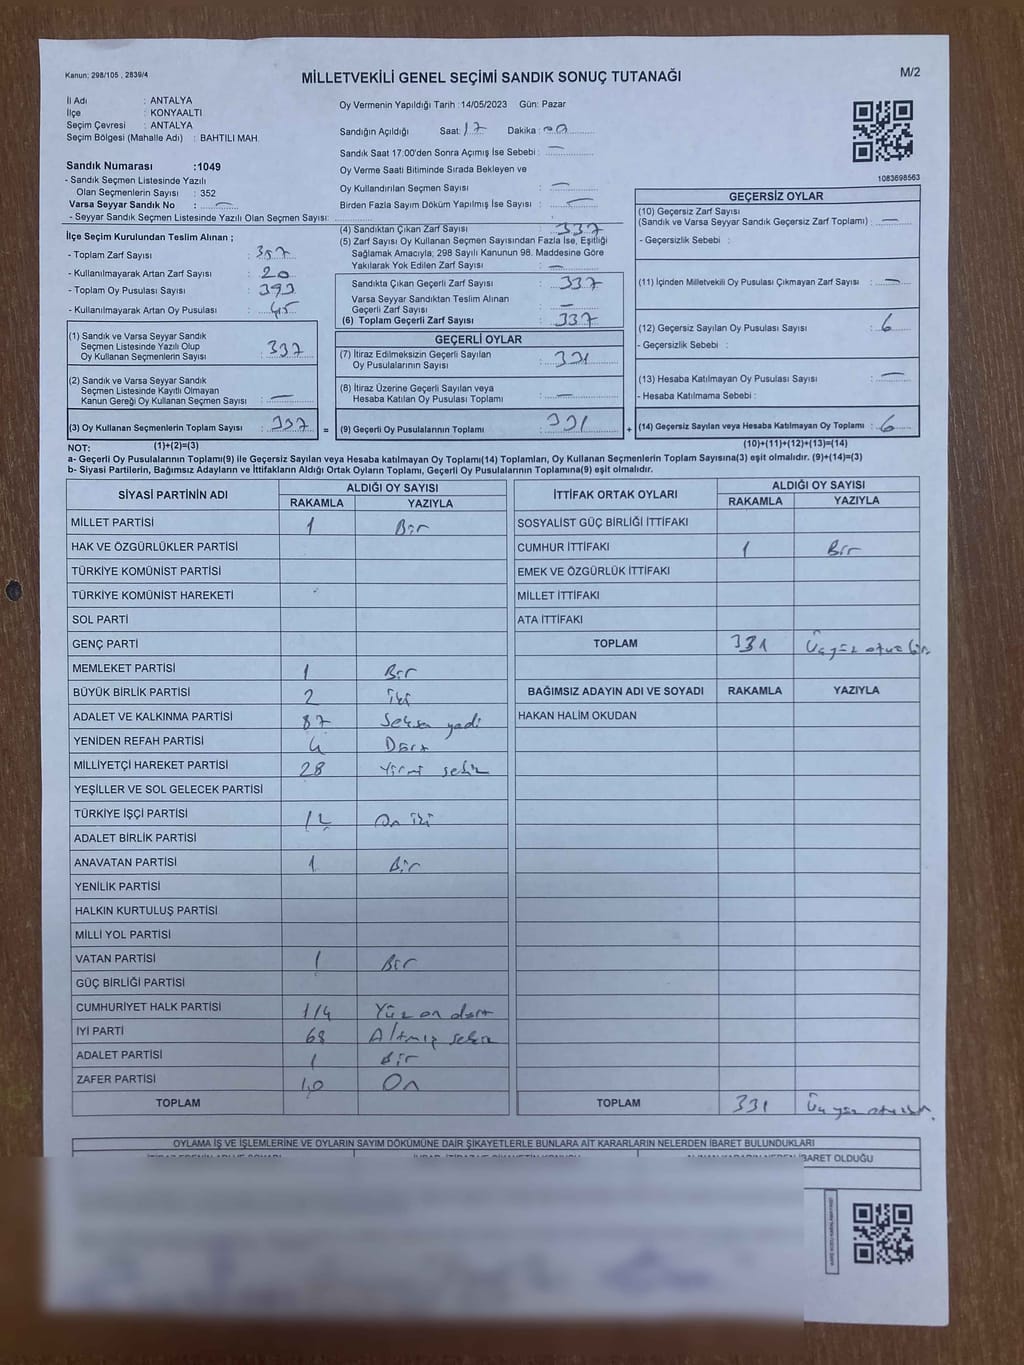 Kanun: 298/105 , 2839/4
MİLLETVEKİLİ GENEL SEÇİMİ SANDIK SONUÇ TUTANAĞI
M/2
İl Adı : ANTALYA
İlçe : KONYAALTI
Seçim Çevresi : ANTALYA
Seçim Bölgesi (Mahalle Adı) : BAHTILI MAH.
Sandık Numarası :1049
- Sandık Seçmen Listesinde Yazılı
Olan Seçmenlerin Sayısı : 352
Varsa Seyyar Sandık No : —
- Seyyar Sandık Seçmen Listesinde Yazılı Olan Seçmen Sayısı:
Oy Vermenin Yapıldığı Tarih :14/05/2023 Gün: Pazar
Sandığın Açıldığı Saat: 17 Dakika: 00
Sandık Saat 17:00'den Sonra Açımış İse Sebebi : —
Oy Verme Saati Bitiminde Sırada Bekleyen ve
Oy Kullandırılan Seçmen Sayısı : —
Birden Fazla Sayım Döküm Yapılmış İse Sayısı : —
1083698563
İlçe Seçim Kurulundan Teslim Alınan ;
- Toplam Zarf Sayısı : 357
- Kullanılmayarak Artan Zarf Sayısı : 20
- Toplam Oy Pusulası Sayısı : 393
- Kullanılmayarak Artan Oy Pusulası : 45
(1) Sandık ve Varsa Seyyar Sandık
Seçmen Listesinde Yazılı Olup
Oy Kullanan Seçmenlerin Sayısı : 337
(2) Sandık ve Varsa Seyyar Sandık
Seçmen Listesinde Kayıtlı Olmayan
Kanun Gereği Oy Kullanan Seçmen Sayısı : —
(3) Oy Kullanan Seçmenlerin Toplam Sayısı : 337 =
(4) Sandıktan Çıkan Zarf Sayısı : 337
(5) Zarf Sayısı Oy Kullanan Seçmen Sayısından Fazla İse, Eşitliği
Sağlamak Amacıyla; 298 Sayılı Kanunun 98. Maddesine Göre
Yakılarak Yok Edilen Zarf Sayısı : —
Sandıkta Çıkan Geçerli Zarf Sayısı : 337
Varsa Seyyar Sandıktan Teslim Alınan
Geçerli Zarf Sayısı : —
(6) Toplam Geçerli Zarf Sayısı : 337
GEÇERLİ OYLAR
(7) İtiraz Edilmeksizin Geçerli Sayılan
Oy Pusulalarının Sayısı : 331
(8) İtiraz Üzerine Geçerli Sayılan veya
Hesaba Katılan Oy Pusulası Toplamı : —
(9) Geçerli Oy Pusulalarının Toplamı : 331 +
GEÇERSİZ OYLAR
(10) Geçersiz Zarf Sayısı
(Sandık ve Varsa Seyyar Sandık Geçersiz Zarf Toplamı) : —
- Geçersizlik Sebebi :
(11) İçinden Milletvekili Oy Pusulası Çıkmayan Zarf Sayısı : —
(12) Geçersiz Sayılan Oy Pusulası Sayısı : 6
- Geçersizlik Sebebi :
(13) Hesaba Katılmayan Oy Pusulası Sayısı : —
- Hesaba Katılmama Sebebi :
(14) Geçersiz Sayılan veya Hesaba Katılmayan Oy Toplamı : 6
NOT: (1)+(2)=(3) (10)+(11)+(12)+(13)=(14)
a- Geçerli Oy Pusulalarının Toplamı(9) ile Geçersiz Sayılan veya Hesaba katılmayan Oy Toplamı(14) Toplamları, Oy Kullanan Seçmenlerin Toplam Sayısına(3) eşit olmalıdır. (9)+(14)=(3)
b- Siyasi Partilerin, Bağımsız Adayların ve İttifakların Aldığı Ortak Oyların Toplamı, Geçerli Oy Pusulalarının Toplamına(9) eşit olmalıdır.
SİYASİ PARTİNİN ADI ALDIĞI OY SAYISI
RAKAMLA YAZIYLA
MİLLET PARTİSİ 1 Bir
HAK VE ÖZGÜRLÜKLER PARTİSİ
TÜRKİYE KOMÜNİST PARTİSİ
TÜRKİYE KOMÜNİST HAREKETİ
SOL PARTİ
GENÇ PARTİ
MEMLEKET PARTİSİ 1 Bir
BÜYÜK BİRLİK PARTİSİ 2 İki
ADALET VE KALKINMA PARTİSİ 87 Seksen yedi
YENİDEN REFAH PARTİSİ 4 Dört
MİLLİYETÇİ HAREKET PARTİSİ 28 Yirmi sekiz
YEŞİLLER VE SOL GELECEK PARTİSİ
TÜRKİYE İŞÇİ PARTİSİ 12 On iki
ADALET BİRLİK PARTİSİ
ANAVATAN PARTİSİ 1 Bir
YENİLİK PARTİSİ
HALKIN KURTULUŞ PARTİSİ
MİLLİ YOL PARTİSİ
VATAN PARTİSİ 1 Bir
GÜÇ BİRLİĞİ PARTİSİ
CUMHURİYET HALK PARTİSİ 114 Yüz on dört
İYİ PARTİ 68 Altmış sekiz
ADALET PARTİSİ 1 Bir
ZAFER PARTİSİ 10 On
TOPLAM
İTTİFAK ORTAK OYLARI ALDIĞI OY SAYISI
RAKAMLA YAZIYLA
SOSYALİST GÜÇ BİRLİĞİ İTTİFAKI
CUMHUR İTTİFAKI 1 Bir
EMEK VE ÖZGÜRLÜK İTTİFAKI
MİLLET İTTİFAKI
ATA İTTİFAKI
TOPLAM 331 Üçyüz otuz bir
BAĞIMSIZ ADAYIN ADI VE SOYADI RAKAMLA YAZIYLA
HAKAN HALİM OKUDAN
TOPLAM 331 Üçyüz otuz bir
OYLAMA İŞ VE İŞLEMLERİNE VE OYLARIN SAYIM DÖKÜMÜNE DAİR ŞİKAYETLERLE BUNLARA AİT KARARLARIN NELERDEN İBARET BULUNDUKLARI
İBARET OLDUĞU